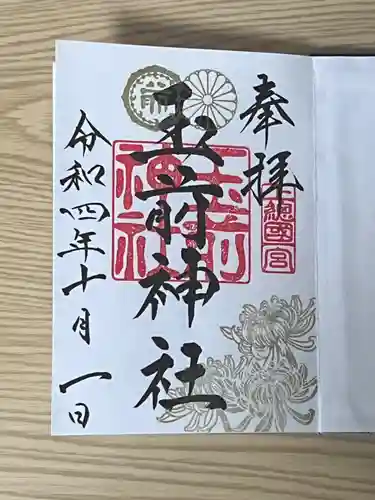 奉拝
上總國一宮
玉前神社
玉前神社
令和四年十月一日